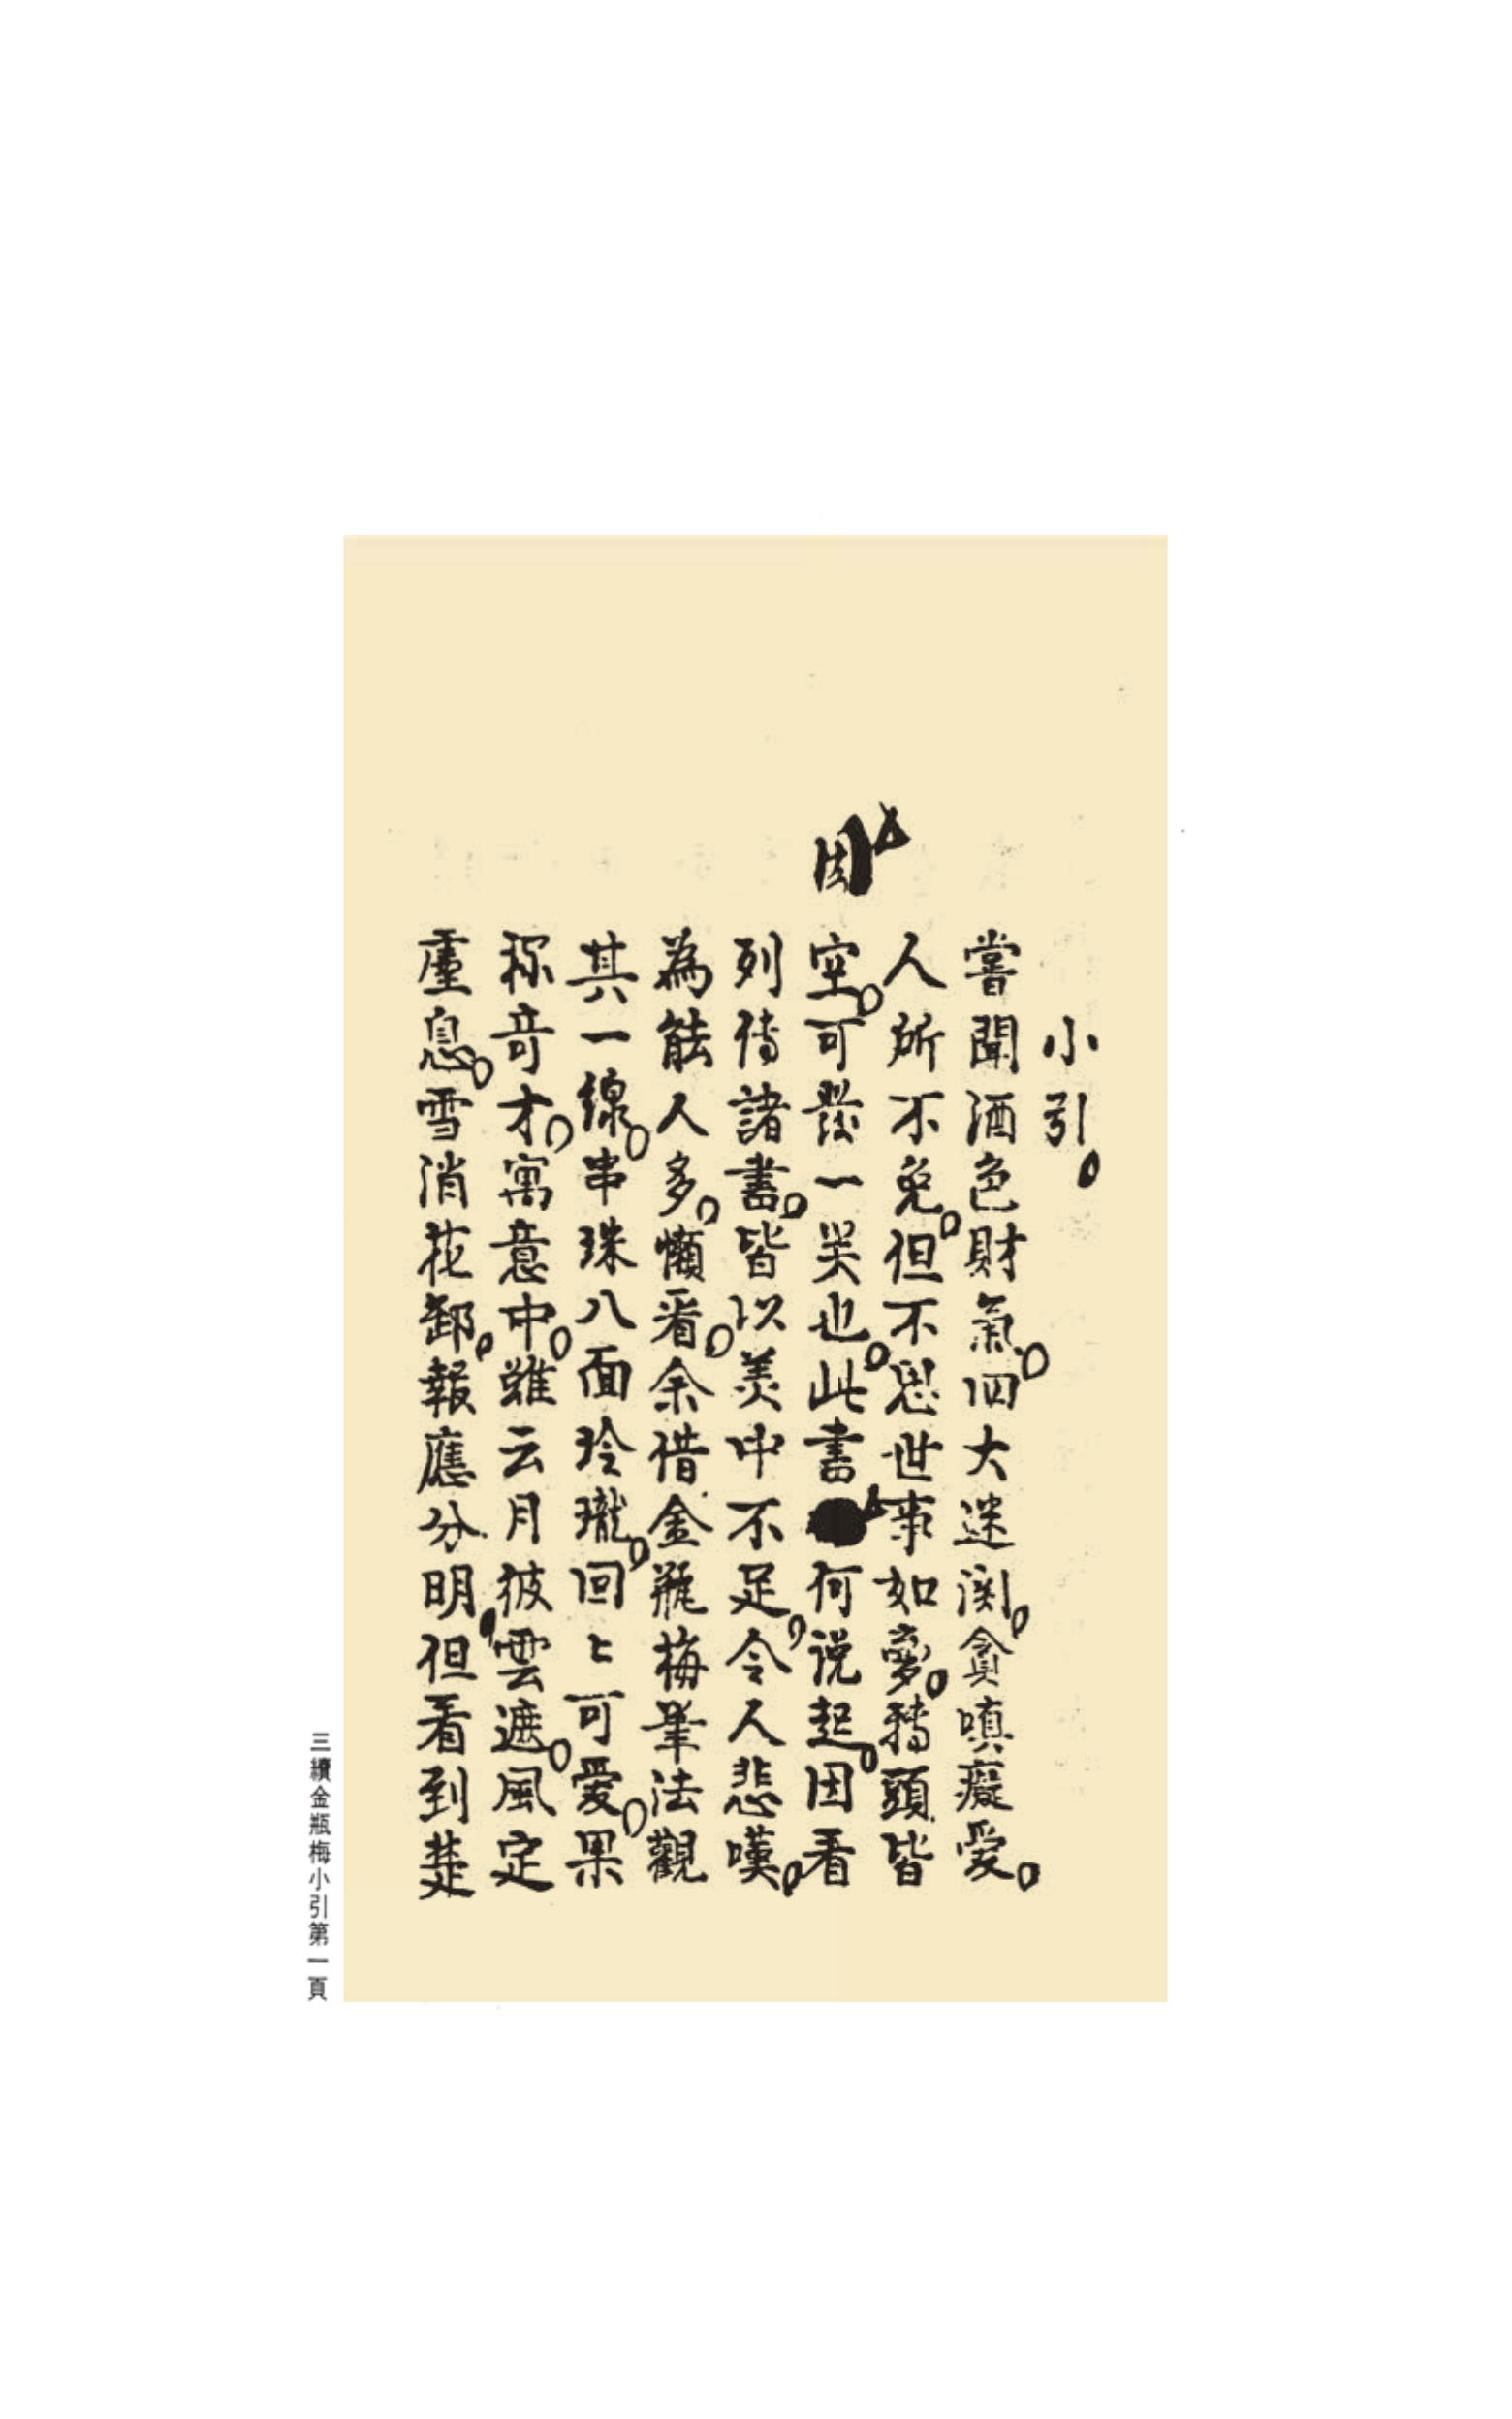 小引。
嘗聞酒色財氣。四大迷関。貪嗔癡愛。
人所不免。但不思世事如夢。轉頭皆
因
空。可發一笑也。此書何说起。因看
列傳諸書。皆以美中不足。令人悲嘆。
為能人多。懶看。余借金瓶梅筆法觀
其一線。串珠八面玲瓏。回々可愛。果
称奇才。寓意中。雖云月彼雲遮。風定
塵息。雪消花卸。報應分明。但看到楚
三續金瓶梅小引第一頁